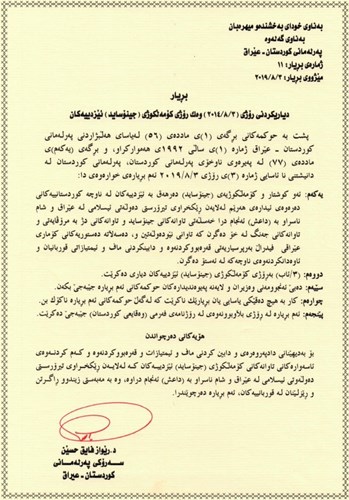 بەناوی خودای بەخشندەو میهرەبان
بەناوی گەلەوە
پەرلەمانی کوردستان - عێراق
ژمارەی بڕیار: ١١
مێژووی بڕیار: ٢٠١٩/٨/٣
بڕیار
دیاریکردنی ڕۆژی (٢٠١٤/٨/٣) وەک ڕۆژی کۆمەڵکوژی (جینۆساید) ئێزدییەکان
پشت بە حوکمەکانی بڕگەی (١)ی ماددەی (٥٦) لەیاسای هەڵبژاردنی پەرلەمانی
کوردستان - عێراق ژمارە (١)ی ساڵی ١٩٩٢ی هەموارکراو، و بڕگەی (یەکەم)ی
ماددەی (٧٧) لە پەیڕەوی ناوخۆی پەرلەمانی کوردستان، پەرلەمانی کوردستان لە
دانیشتنی نا ئاسایی ژمارە (٣)ی ڕۆژی ٢٠١٩/٨/٣ ئەم بڕیارەی خوارەوەی دا:
یەکەم: ئەو کوشتار و کۆمەڵکوژیەی (جینۆساید) دەرهەق بە ئێزدییەکان لە ناوچە کوردستانییەکانی
دەرەوەی ئیدارەی هەرێم لەلایەن ڕێکخراوی تیرۆرستی دەوڵەتی ئیسلامی لە عێراق و شام
ناسراو بە (داعش) ئەنجام درا خەسڵەتی تاوانەکانی جینۆساید و تاوانەکانی دژ بە مرۆڤایەتی و
تاوانەکانی جەنگ لە خۆ دەگرن کە تاوانی نێودەوڵەتین، و دەسەڵاتە دەستورییەکانی کۆماری
عێراقی فیدراڵ بەرپرسیارێتی قەرەبووکردنەوە و دابینکردنی ماف و ئیمتیازاتی قوربانیان و
ئاوەدانکردنەوەی ناوچەکە لە ئەستۆ دەگرن.
دووەم: (٣/ئاب) بەڕۆژی کۆمەڵکوژی (جینۆساید) ئێزدییەکان دیاری دەکرێت.
سێیەم: دەبێ ئەنجوومەنی وەزیران و لایەنە پەیوەندیدارەکان حوکمەکانی ئەم بڕیارە جێبەجێ بکەن.
چوارەم: کار بە هیچ دەقێکی یاسایی یان بڕیارێک ناکرێت کە لەگەڵ حوکمەکانی ئەم بڕیارە ناکۆک بن.
پێنجەم: ئەم بڕیارە لە ڕۆژی بڵاوبوونەوەی لە ڕۆژنامەی فەرمی (وەقایعی کوردستان) جێبەجێ دەکرێت.
هۆیەکانی دەرچواندن
بۆ بەدیهێنانی دادپەروەری و دابین کردنی ماف و ئیمتیازات و قەرەبووکردنەوە و کەم کردنەوەی
ئاسەوارەکانی تاوانەکانی کۆمەڵکوژی (جینۆساید) ئێزدییەکان کە لەلایەن ڕێکخراوی تیرۆرستی
دەوڵەتی ئیسلامی لە عێراق و شام ناسراو بە (داعش) ئەنجام دراوە، وە بە مەبەستی زیندوو ڕاگرتن و
ڕێزلێنان لە قوربانییەکان، ئەم بڕیارە دەرچوێندرا.
د.ڕێواز فایق حسێن
سەرۆکی پەرلەمانی
کوردستان - عیراق